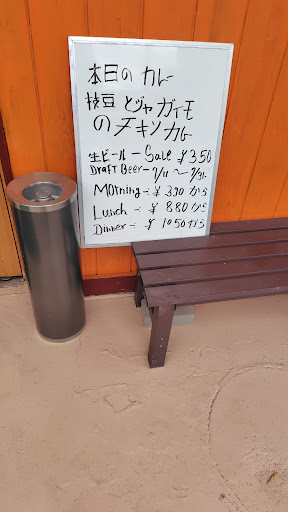 本日の カレー
枝豆 とジャガイモ
のチキンカレー
生ビール - Sale ¥350
DRAFT Beer - 7/11 ~ 7/31.
Morning - ¥ 390 から
Lunch - ¥ 880 から
Dinner - ¥ 1050から